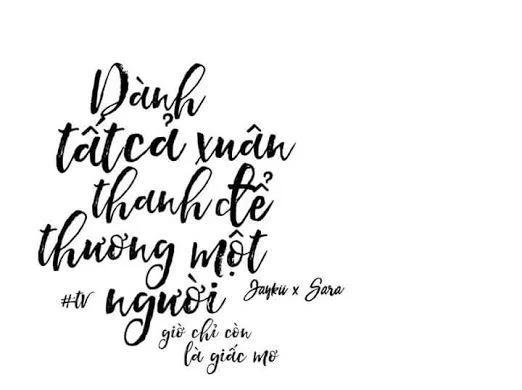 Dành
tất cả xuân
thanh để
thương một
#tv người Jaykii x Sara
giờ chỉ còn
là giấc mơ